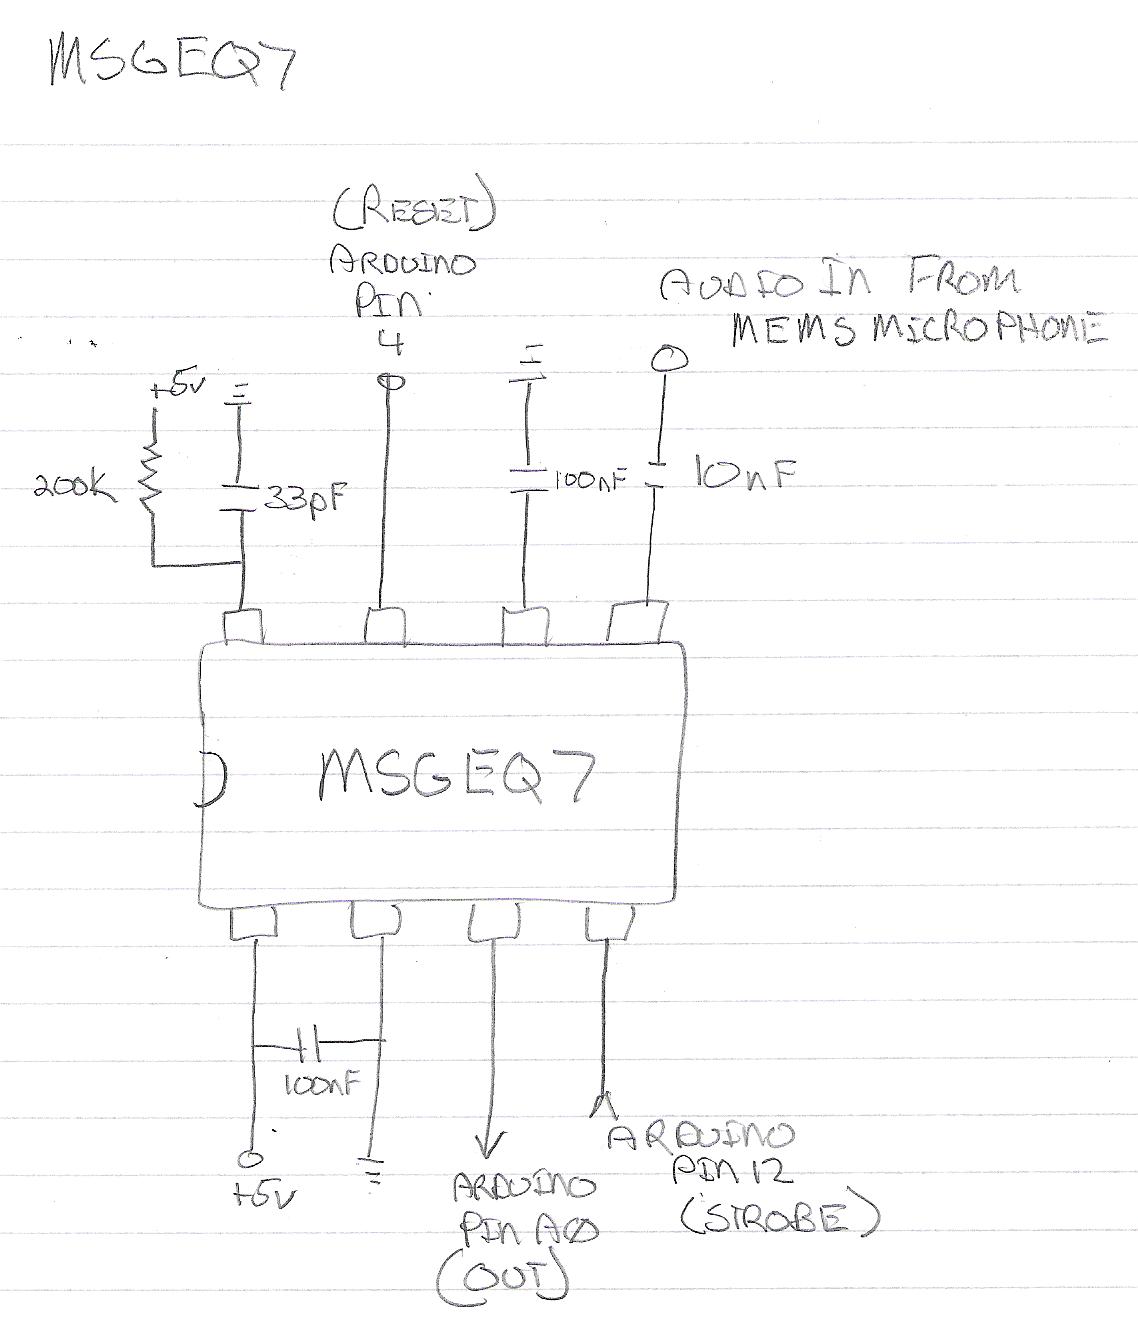 MSGEQ7
(RESET)
ARDUINO
PIN
4
AUDIO IN FROM
MEMS MICROPHONE
+5v
200K
33pF
100nF
10nF
MSGEQ7
100nF
+5v
ARDUINO
PIN A0
(OUT)
ARDUINO
PIN 12
(STROBE)